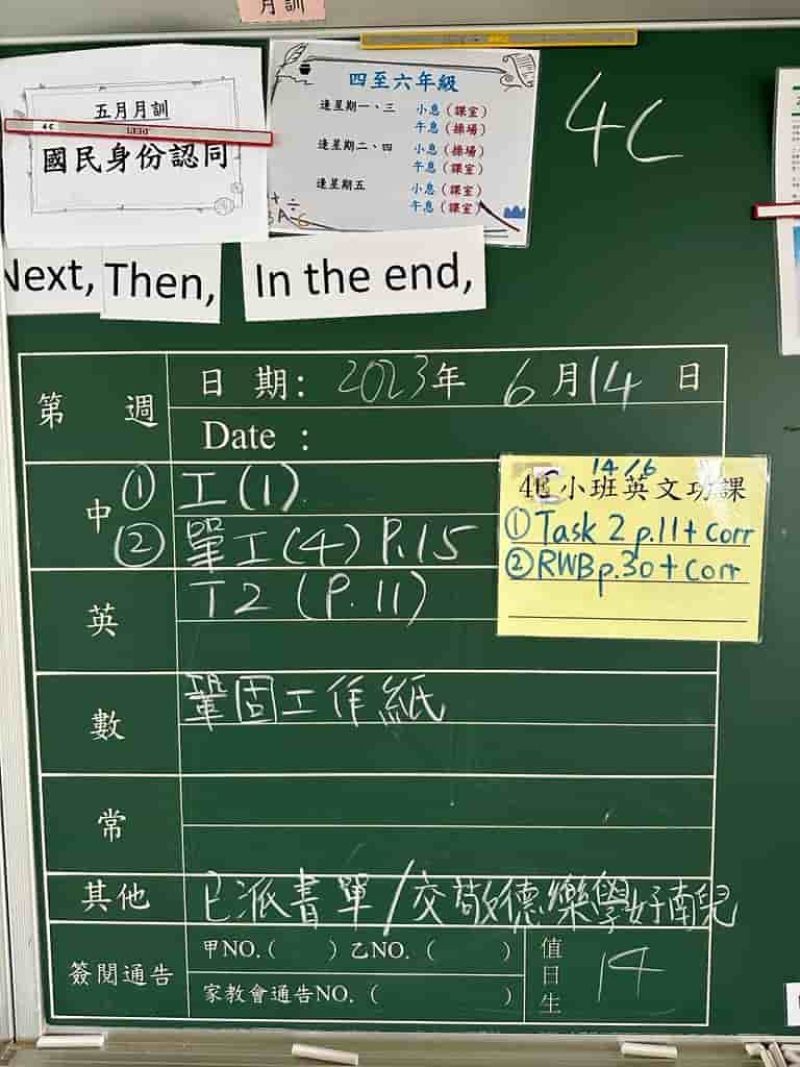 月訓
五月月訓
國民身份認同
四至六年級
逢星期一、三 小息（課室）
午息（操場）
逢星期二、四 小息（操場）
午息（課室）
逢星期五 小息（課室）
午息（課室）
4C
Next, Then, In the end,
第 週
日期： 2023年 6月14日
Date :
中 ① 工(1)
② 單工(4) P.15
英 T2 (P.11)
數 鞏固工作紙
常
其他 已派書單/交敬德樂學好南兒
簽閱通告 甲NO.( ) 乙NO. ( )
家教會通告NO. ( )
值日生 14
14/6
4C 小班英文功課
① Task 2 p.11 + corr
② RWB p.30 + corr